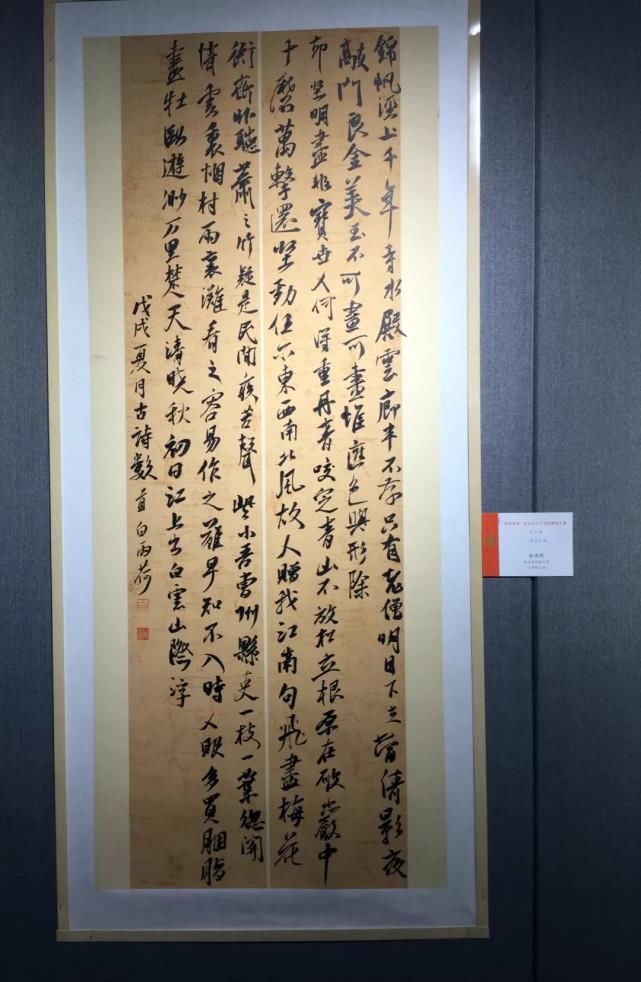 錦帆涇上千年寺水殿雲廊半不存只有老僧明月下立當清影夜
敲門良金美玉不可畫可畫惟應色與形除
却空明盡非寶世人何得重丹青咬定青山不放松立根原在破巖中
千磨萬擊還堅勁任尔東西南北風故人贈我江南句飛盡梅花
衙齋卧聽蕭々竹疑是民間疾苦聲些小吾曹州縣吏一枝一葉總關
情雲裏烟村雨裏灘看之容易作之難早知不入時人眼多買胭脂
畫牡 卧遊渺万里楚天清曉秋初日江上出白雲山際浮
戊戌夏月古詩數首白雨荷